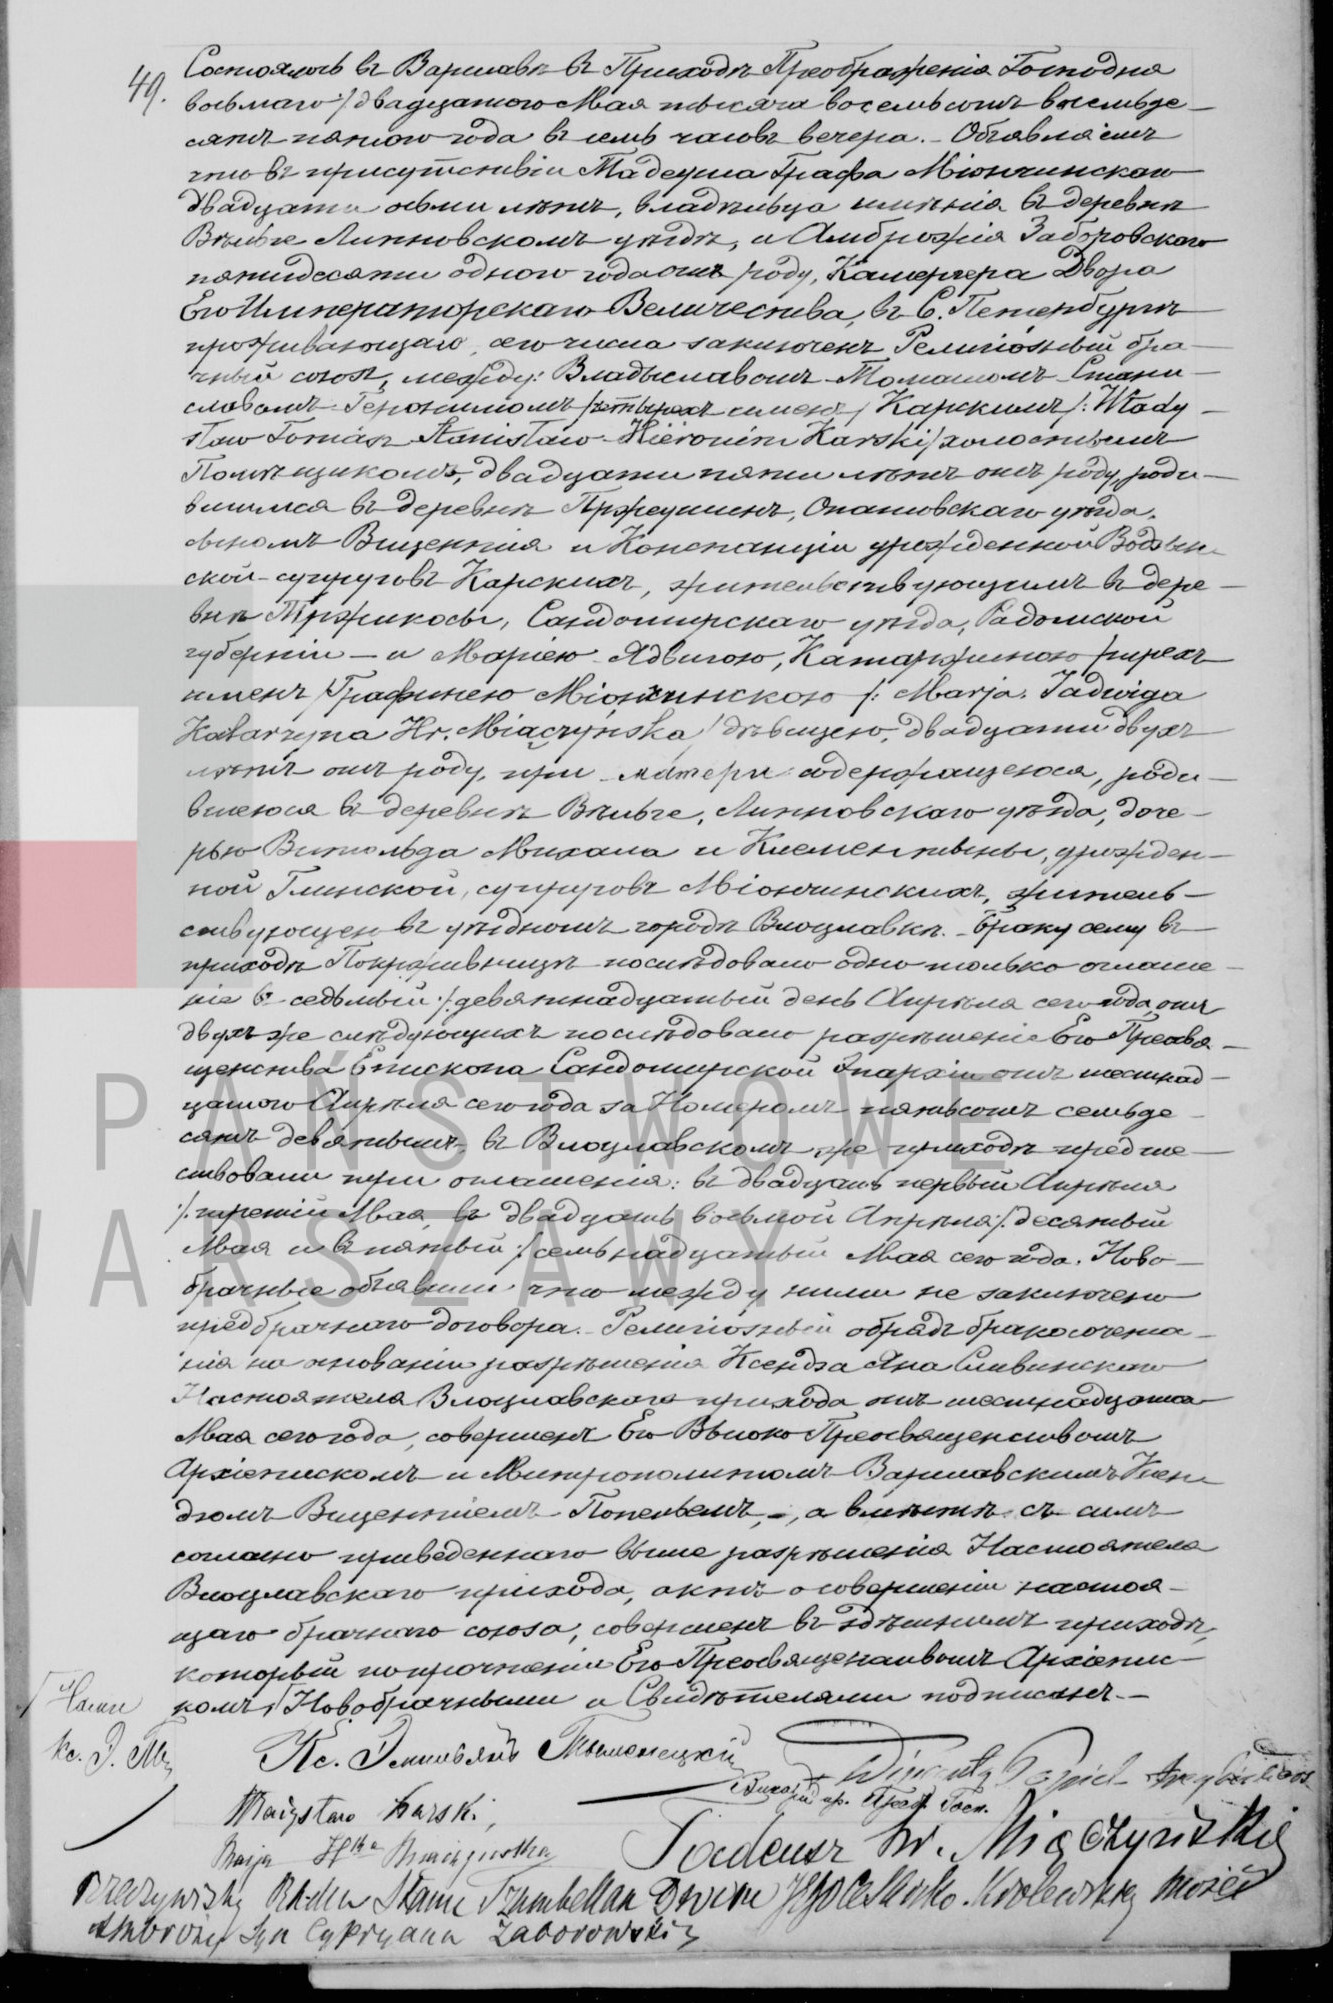 49.
Состоялось въ Варшавѣ въ Приходѣ Преображенія Господня
восьмаго /: двадцатого Мая тысяча восемьсотъ восемьде-
сятъ пятого года въ семь часовъ вечера. - Объявляемъ
что въ присутствіи Тадеуша Графа Міончинскаго
двадцати осьми лѣтъ, владѣльца имѣнія въ деревнѣ
Вѣльге Липновскомъ уѣздѣ, и Амброжія Заборовскаго
пятидесяти одного года отъ роду, Камергера Двора
Его Императорскаго Величества, въ С. Петербургѣ
проживающаго, сего числа заключенъ Религіозный бра-
чный союзъ, между: Владыславомъ - Томашомъ - Стани-
славомъ - Геронимомъ /четырехъ именъ/ Карскимъ /: Włady-
sław Tomasz Stanisław Hieronim Karski / холостымъ
Помѣщикомъ, двадцати пяти лѣтъ отъ роду, роди-
вшимся въ деревнѣ Пржеушинъ, Опатовскаго уѣзда,
сыномъ Винцентія и Констанціи урожденной Водзин-
ской - супруговъ Карскихъ, жительствующимъ въ дере-
внѣ Тржикосы, Сандомирскаго уѣзда, Радомской
губерніи - и Маріею - Ядвигою, Катаржиною /трехъ
именъ / Графинею Міончинскою /: Marja. Jadwiga
Katarzyna Hr. Miączyńska / дѣвицею, двадцати двухъ
лѣтъ отъ роду, при матери содержащеюся, роди-
вшеюся въ деревнѣ Вѣльге, Липновскаго уѣзда, доче-
рью Витольда Михала и Клементины, урожден-
ной Глинской, супруговъ Міончинскихъ, житель-
ствующею въ уѣздномъ городѣ Влоцлавкѣ. - Браку сему въ
приходѣ Покрживницѣ послѣдовало одно только оглаше-
ніе въ седьмый /: девятнадцатый день Апрѣля сего года, отъ
двухъ же слѣдующихъ послѣдовало разрѣшеніе Его Преосвя-
щенства Епископа Сандомирской Эпархіи отъ шестнад-
цатого Апрѣля сего года за Номеромъ пятьсотъ семьде-
сятъ девятымъ, въ Влоцлавскомъ же приходѣ предше-
ствовали три оглашенія: въ двадцать первый Апрѣля
/: третій Мая, въ двадцать восьмой Апрѣля /: десятый
Мая и въ пятый /: семьнадцатый Мая сего года. Ново-
брачные объявили что между ними не заключено
предбрачнаго договора. - Религіозный обрядъ бракосочета-
нія на основаніи разрѣшенія Ксендза Яна Сливинскаго
Настоятеля Влоцлавскаго прихода отъ шестнадцатаго
Мая сего года, совершенъ Его Высоко Преосвященствомъ
Архіепископомъ и Митрополитомъ Варшавскимъ Ксен-
дзомъ Винцентіемъ Попелемъ, -, а вмѣстѣ съ симъ
согласно приведеннаго выше разрѣшенія Настоятеля
Влоцлавскаго прихода, актъ о совершеніи настоя-
щаго брачнаго союза, совершенъ въ здѣшнемъ приходѣ,
который по прочтеніи Его Преосвященствомъ Архіепис-
комъ, Новобрачными и Свидѣтелями подписанъ. -
Нами
Кс. Э. Тм
Кс. Эмильянъ Тлименецкій
Викарій пр. Преоб. Госп.
Wincenty Popiel - Arcybiskup
Władysław Karski,
Marja Hr Miączyńska
Tadeusz hr. Miączyński
Rzeczywisty Radca Stanu Szambellan Dworu
Ambroży Syn Cypryana Zaborowski
PAŃSTWOWE
WARSZAWY